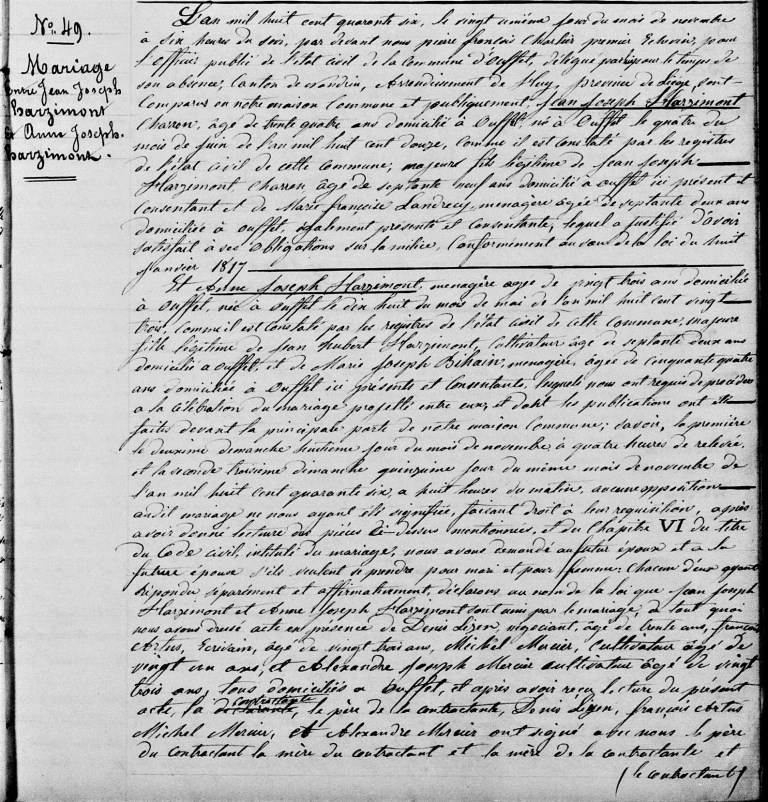 No. 49.
Mariage
Entre Jean Joseph
harzimont
et Anne Joseph.
harzimont.
L'an mil huit cent quarante six, le vingt unième jour du mois de novembre
à six heures du soir, par devant nous pierre françois Charlier premier Echevin, pour
l'officier public de l'état civil de la Commune d'Ouffet, délégué par pour le temps de
son absence, Canton de nandrin, Arrondissement de Huy, province de Liège, sont
Comparus en notre maison Commune et publiquement, Jean Joseph Harzimont
Charron, âgé de trente quatre ans domicilié à Ouffet, né à Ouffet le quatre du
mois de juin de l'an mil huit cent douze, Comme il est constaté par les registres
de l'état civil de cette Commune, majeur fils légitime de Jean Joseph
Harzimont Charron, âgé de septante neuf ans domicilié à ouffet ici présent et
Consentant et de Marie françoise Landrecy, menagère âgée de septante deux ans
domiciliée à ouffet, également présente et Consentante, lequel a justifié d'avoir
satisfait à ses obligations sur la milice, Conformément au vœu de la loi du huit
Janvier 1817
Et Anne Joseph Harzimont, menagère agée de vingt trois ans domiciliée
à Ouffet, née à Ouffet le dix huit du mois de mai de l'an mil huit cent vingt
trois, comme il est constaté par les registres de l'état civil de cette Commune, majeure
fille légitime de Jean hubert Harzimont, Cultivateur âgé de septante deux ans
domicilié à Ouffet, et de Marie Joseph Bihain, menagère, agée de Cinquante quatre
ans domiciliée à Ouffet ici présente et Consentante, lesquels nous ont requis de procéder
a la Célébration du mariage projetté entre eux, et dont les publications ont été
faites devant la principale porte de notre maison Commune; savoir, la première
le deuxième dimanche huitième jour du mois de novembre, à quatre heures de relevée,
et la seconde troisième dimanche quinzième jour du même mois de novembre de
l'an mil huit cent quarante six, a huit heures du matin, aucune opposition
audit mariage ne nous ayant été signifiée, faisant droit à leur requisition, après
avoir donné lecture des pièces Ci-dessus mentionnées, et du Chapitre VI du titre
du Code civil, intitulé du mariage, nous avons demandé au futur époux et a la
future épouse s'ils veulent se prendre pour mari et pour femme; Chacun d'eux ayant
répondu séparément et affirmativement, déclarons au nom de la loi que Jean Joseph
Harzimont et Anne Joseph Harzimont sont unis par le mariage, de tout quoi
nous avons dressé acte en présence de Denis Lizen, négociant, âgé de trente ans, françois
Artus, Ecrivain, âgé de vingt trois ans, Michel Mercier, Cultivateur âgé de
vingt un ans, et Alexandre Joseph Mercier Cultivateur âgé de vingt
trois ans, tous domiciliés a Ouffet, et après avoir reçu lecture du présent
acte, la contractante, le père de la contractante, Denis Lizen, françois Artus
Michel Mercier, et Alexandre Mercier ont signé avec nous. le père
du contractant la mère du contractant et la mère de la contractante et
(le contractant)